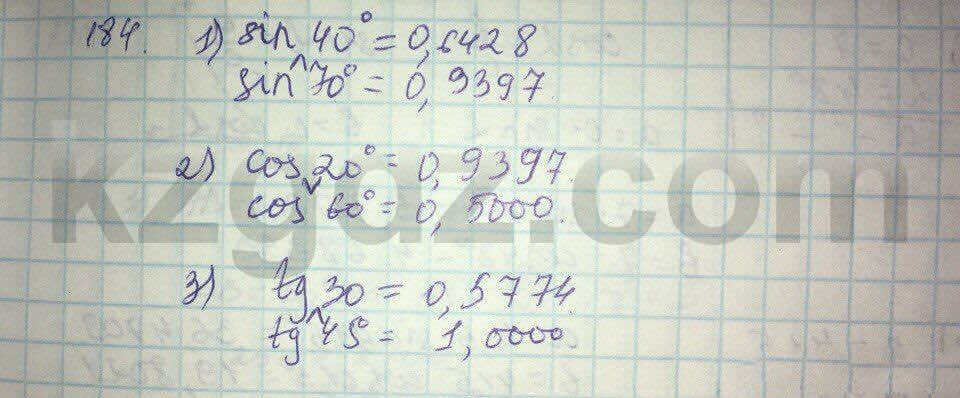 184. 1) sin 40° = 0,6428
^
sin 70° = 0,9397
2) cos 20° = 0,9397.
v
cos 60° = 0,5000.
3) tg 30 = 0,5774.
^
tg 45° = 1,0000.
kzgaz.com